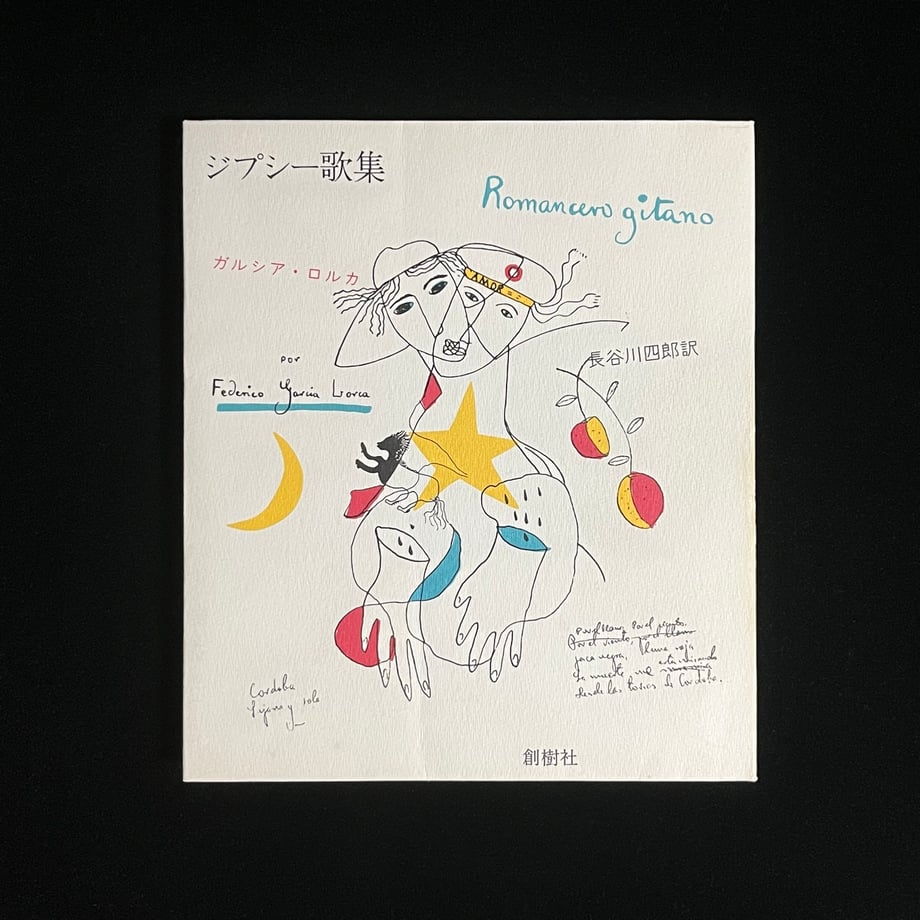 ジプシー歌集
Romancero gitano
ガルシア・ロルカ
AMOR
por
Federico García Lorca
長谷川四郎訳
Por el llano, por el viento,
Por el viento, por el llano
jaca negra, luna roja
la muerte me está mirando
desde las torres de Córdoba.
Cordoba
lejana y sola
創樹社